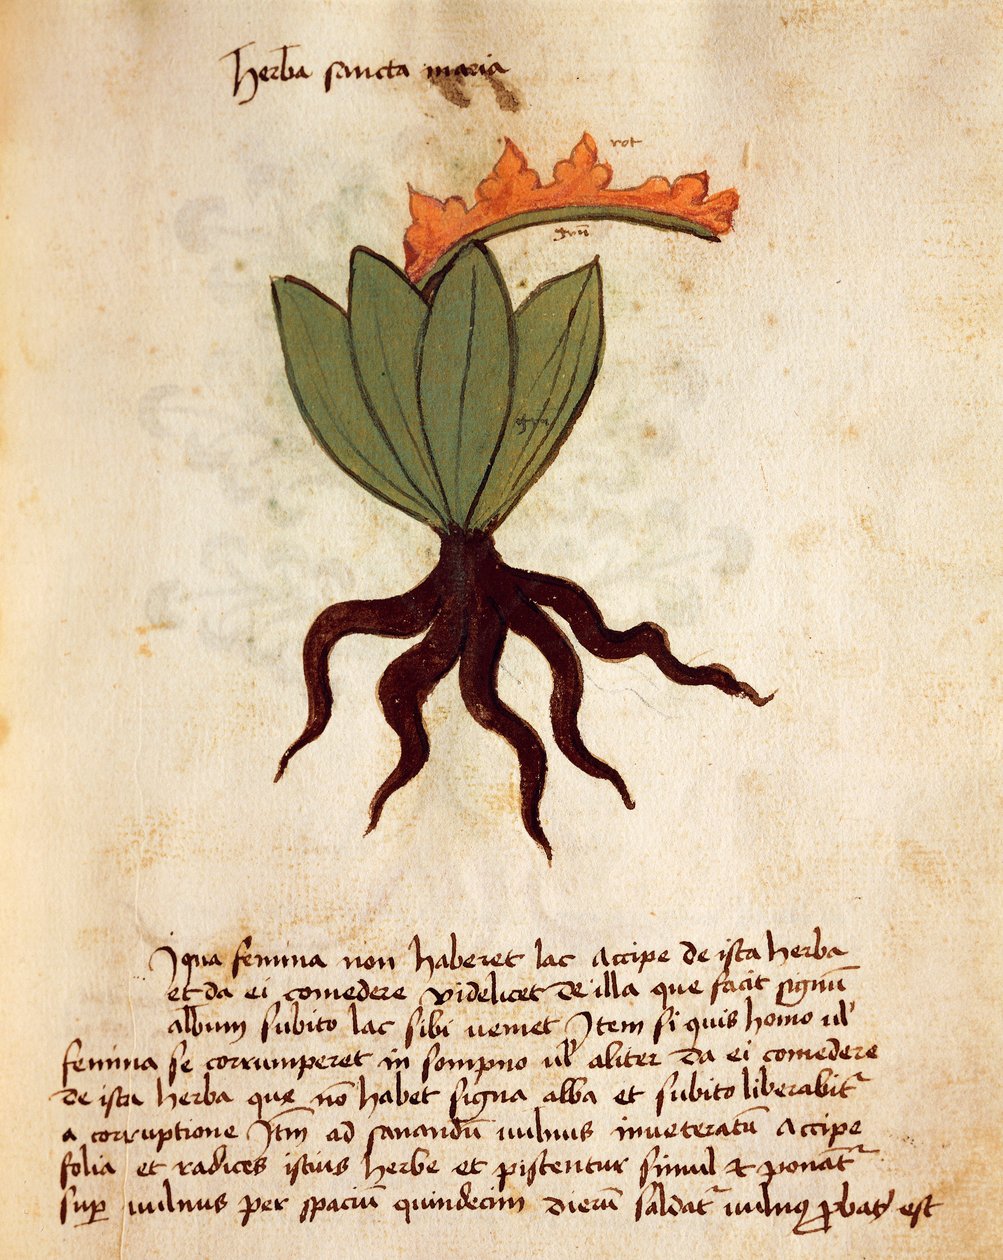 herba sancta maria
rot
grün
grün
Iqua femina non haberet lac accipe de ista herba
et da ei comedere videlicet de illa que facit signū
album subito lac sibi veniet Item si quis homo ul'
femina se corrumperet in sompno ul' aliter da ei comedere
de ista herba que nō habet signa alba et subito liberabit᷑
a corruptione Itm̄ ad sanandū uulnus inueteratū accipe
folia et radices istius herbe et pistentur simul et ponāt᷑
sup̄ uulnus per spaciū quindecim dierū saldat᷑ uulnꝯ ꝓbat᷑ est